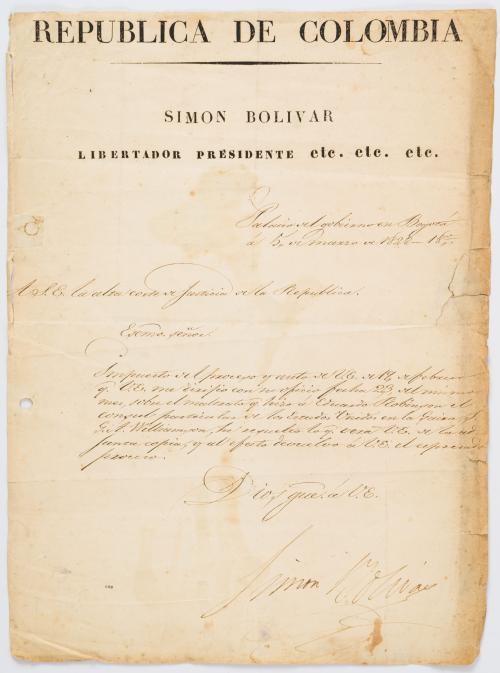 REPUBLICA DE COLOMBIA
SIMON BOLIVAR
LIBERTADOR PRESIDENTE etc. etc. etc.
Palacio del gobierno en Bogotá
á 5, de marzo de 1828–18º
A S.E. la alta corte de Justicia de la Republica.
Escmo. señor.
Impuesto del proceso y auto de V.E. de 12, de febrero
q. V.E. me dirijio con su oficio fecha 23 del mismo
mes, sobre el maltrato q. hizo á Eduardo Robinson el
consul particular de los Estados Unidos en la Guaira
A. Williamson, he resuelto lo q. verá V.E. de la ad
junta copia, y al efecto devuelvo á V.E. el espresado
proceso.
Dios gue. á V.E.
Simon Bolivar